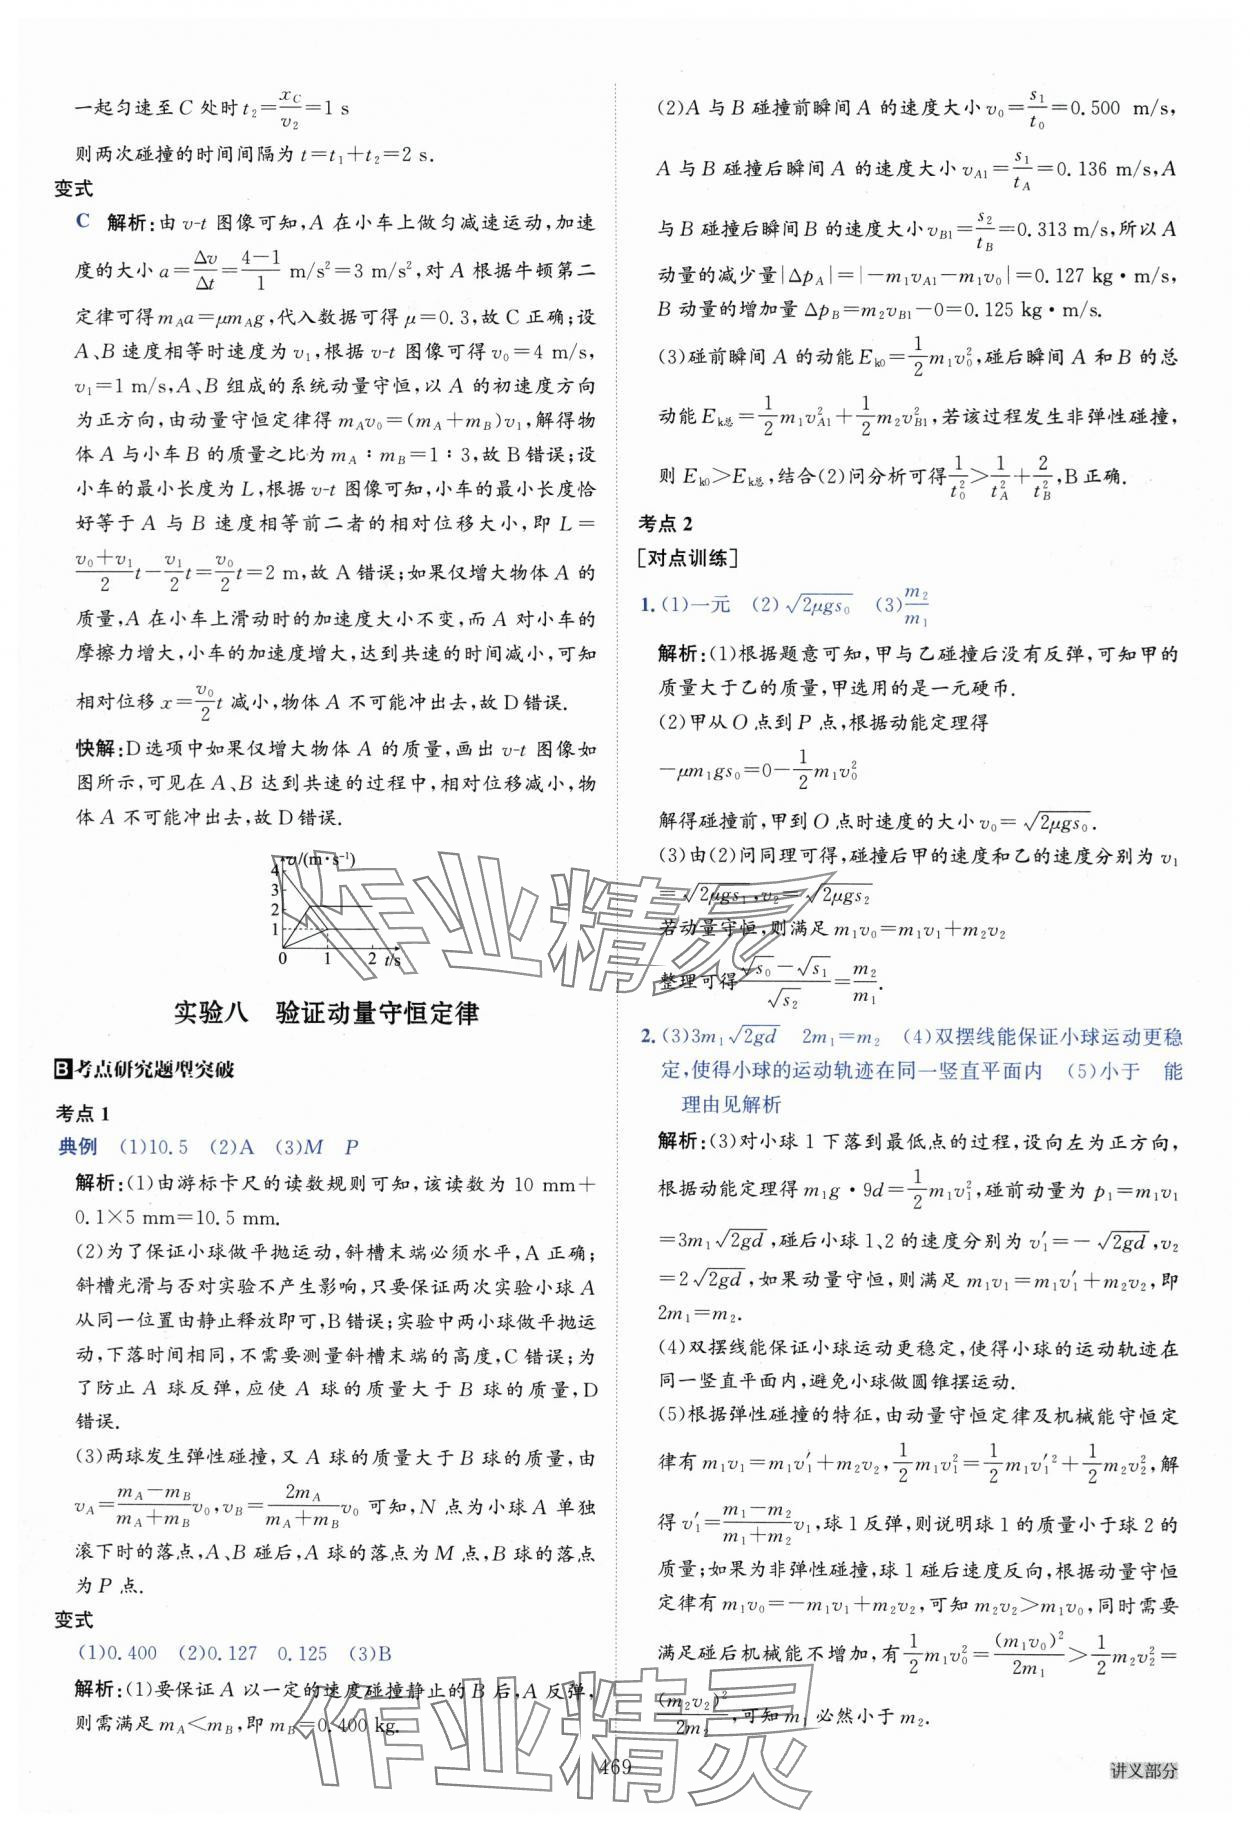 一起匀速至 C 处时 t₂=x_C/v₂=1 s
则两次碰撞的时间间隔为 t=t₁+t₂=2 s.
变式
C 解析:由 v-t 图像可知,A 在小车上做匀减速运动,加速
度的大小 a=Δv/Δt=(4−1)/1 m/s²=3 m/s²,对 A 根据牛顿第二
定律可得 m_A a=μm_A g,代入数据可得 μ=0.3,故 C 正确;设
A、B 速度相等时速度为 v₁,根据 v-t 图像可得 v₀=4 m/s,
v₁=1 m/s,A、B 组成的系统动量守恒,以 A 的初速度方向
为正方向,由动量守恒定律得 m_A v₀=(m_A+m_B)v₁,解得物
体 A 与小车 B 的质量之比为 m_A∶m_B=1∶3,故 B 错误;设
小车的最小长度为 L,根据 v-t 图像可知,小车的最小长度恰
好等于 A 与 B 速度相等前二者的相对位移大小,即 L=
(v₀+v₁)/2 t−v₁/2 t=v₀/2 t=2 m,故 A 错误;如果仅增大物体 A 的
质量,A 在小车上滑动时的加速度大小不变,而 A 对小车的
摩擦力增大,小车的加速度增大,达到共速的时间减小,可知
相对位移 x=v₀/2 t 减小,物体 A 不可能冲出去,故 D 错误.
快解:D 选项中如果仅增大物体 A 的质量,画出 v-t 图像如
图所示,可见在 A、B 达到共速的过程中,相对位移减小,物
体 A 不可能冲出去,故 D 错误.
v/(m·s⁻¹)
4
3
2
1
0 1 2 t/s
实验八 验证动量守恒定律
B 考点研究题型突破
考点 1
典例 (1)10.5 (2)A (3)M P
解析:(1)由游标卡尺的读数规则可知,该读数为 10 mm+
0.1×5 mm=10.5 mm.
(2)为了保证小球做平抛运动,斜槽末端必须水平,A 正确;
斜槽光滑与否对实验不产生影响,只要保证两次实验小球 A
从同一位置由静止释放即可,B 错误;实验中两小球做平抛运
动,下落时间相同,不需要测量斜槽末端的高度,C 错误;为
了防止 A 球反弹,应使 A 球的质量大于 B 球的质量,D
错误.
(3)两球发生弹性碰撞,又 A 球的质量大于 B 球的质量,由
v_A=(m_A−m_B)/(m_A+m_B) v₀,v_B=2m_A/(m_A+m_B) v₀ 可知,N 点为小球 A 单独
滚下时的落点,A、B 碰后,A 球的落点为 M 点,B 球的落点
为 P 点.
变式
(1)0.400 (2)0.127 0.125 (3)B
解析:(1)要保证 A 以一定的速度碰撞静止的 B 后,A 反弹,
则需满足 m_A<m_B,即 m_B=0.400 kg.
(2)A 与 B 碰撞前瞬间 A 的速度大小 v₀=s₁/t₀=0.500 m/s,
A 与 B 碰撞后瞬间 A 的速度大小 v_A1=s₁/t_A=0.136 m/s,A
与 B 碰撞后瞬间 B 的速度大小 v_B1=s₂/t_B=0.313 m/s,所以 A
动量的减少量|Δp_A|=|−m₁v_A1−m₁v₀|=0.127 kg·m/s,
B 动量的增加量 Δp_B=m₂v_B1−0=0.125 kg·m/s.
(3)碰前瞬间 A 的动能 E_k0=1/2 m₁v₀²,碰后瞬间 A 和 B 的总
动能 E_k总=1/2 m₁v_A1²+1/2 m₂v_B1²,若该过程发生非弹性碰撞,
则 E_k0>E_k总,结合(2)问分析可得 1/t₀²>1/t_A²+2/t_B²,B 正确.
考点 2
[对点训练]
1. (1)一元 (2)√(2μgs₀) (3)m₂/m₁
解析:(1)根据题意可知,甲与乙碰撞后没有反弹,可知甲的
质量大于乙的质量,甲选用的是一元硬币.
(2)甲从 O 点到 P 点,根据动能定理得
−μm₁gs₀=0−1/2 m₁v₀²
解得碰撞前,甲到 O 点时速度的大小 v₀=√(2μgs₀).
(3)由(2)问同理可得,碰撞后甲的速度和乙的速度分别为 v₁
=√(2μgs₁),v₂=√(2μgs₂)
若动量守恒,则满足 m₁v₀=m₁v₁+m₂v₂
整理可得(√s₀−√s₁)/√s₂=m₂/m₁.
2. (3)3m₁√(2gd) 2m₁=m₂ (4)双摆线能保证小球运动更稳
定,使得小球的运动轨迹在同一竖直平面内 (5)小于 能
理由见解析
解析:(3)对小球 1 下落到最低点的过程,设向左为正方向,
根据动能定理得 m₁g·9d=1/2 m₁v₁²,碰前动量为 p₁=m₁v₁
=3m₁√(2gd),碰后小球 1、2 的速度分别为 v₁′=−√(2gd),v₂
=2√(2gd),如果动量守恒,则满足 m₁v₁=m₁v₁′+m₂v₂,即
2m₁=m₂.
(4)双摆线能保证小球运动更稳定,使得小球的运动轨迹在
同一竖直平面内,避免小球做圆锥摆运动.
(5)根据弹性碰撞的特征,由动量守恒定律及机械能守恒定
律有 m₁v₁=m₁v₁′+m₂v₂,1/2 m₁v₁²=1/2 m₁v₁′²+1/2 m₂v₂²,解
得 v₁′=(m₁−m₂)/(m₁+m₂) v₁,球 1 反弹,则说明球 1 的质量小于球 2 的
质量;如果为非弹性碰撞,球 1 碰后速度反向,根据动量守恒
定律有 m₁v₀=−m₁v₁+m₂v₂,可知 m₂v₂>m₁v₀,同时需要
满足碰后机械能不增加,有 1/2 m₁v₀²=(m₁v₀)²/2m₁>1/2 m₂v₂²=
(m₂v₂)²/2m₂,可知 m₁ 必然小于 m₂.
作业精灵
作业精灵
469
讲义部分